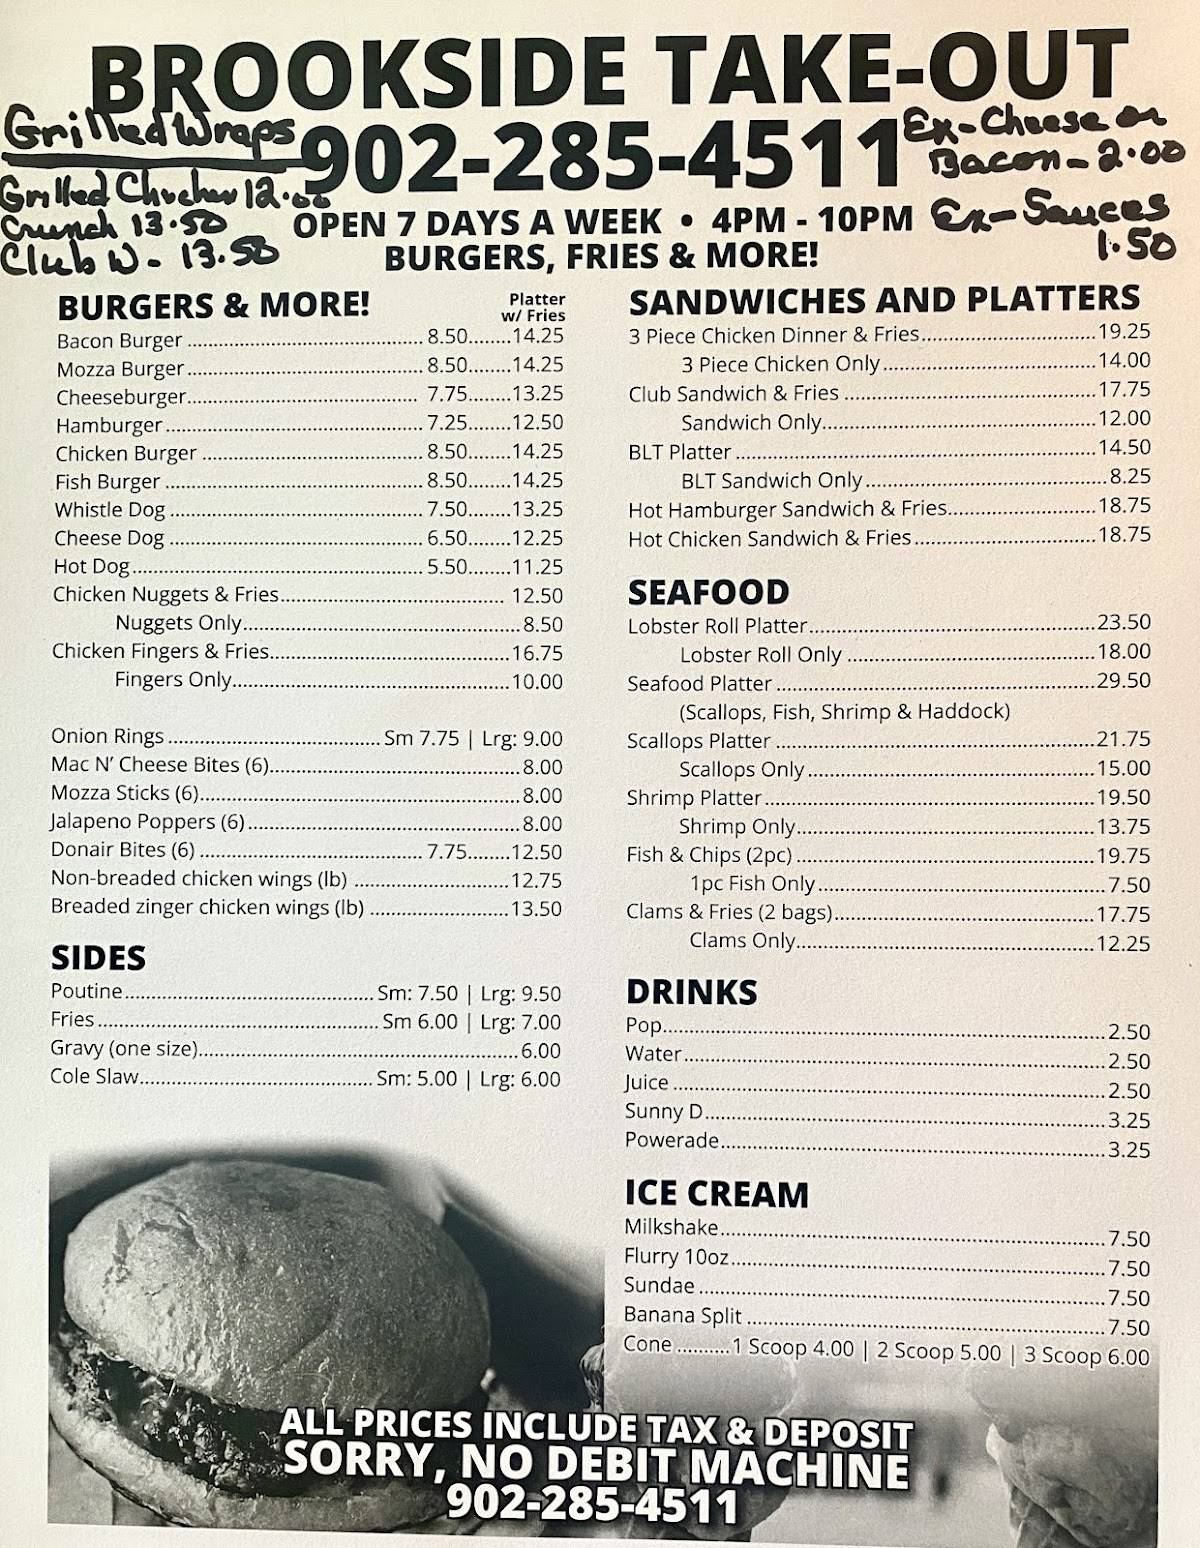 BROOKSIDE TAKE-OUT
902-285-4511
Grilled Wraps
Grilled Chicken 12.00
Crunch 13.50
Club W - 13.50
Ex-Cheese or
Bacon - 2.00
Ex-Sauces
1.50
OPEN 7 DAYS A WEEK • 4PM - 10PM
BURGERS, FRIES & MORE!
BURGERS & MORE! Platter
w/ Fries
Bacon Burger 8.50 14.25
Mozza Burger 8.50 14.25
Cheeseburger 7.75 13.25
Hamburger 7.25 12.50
Chicken Burger 8.50 14.25
Fish Burger 8.50 14.25
Whistle Dog 7.50 13.25
Cheese Dog 6.50 12.25
Hot Dog 5.50 11.25
Chicken Nuggets & Fries 12.50
Nuggets Only 8.50
Chicken Fingers & Fries 16.75
Fingers Only 10.00
Onion Rings Sm 7.75 | Lrg: 9.00
Mac N' Cheese Bites (6) 8.00
Mozza Sticks (6) 8.00
Jalapeno Poppers (6) 8.00
Donair Bites (6) 7.75 12.50
Non-breaded chicken wings (lb) 12.75
Breaded zinger chicken wings (lb) 13.50
SIDES
Poutine Sm: 7.50 | Lrg: 9.50
Fries Sm 6.00 | Lrg: 7.00
Gravy (one size) 6.00
Cole Slaw Sm: 5.00 | Lrg: 6.00
SANDWICHES AND PLATTERS
3 Piece Chicken Dinner & Fries 19.25
3 Piece Chicken Only 14.00
Club Sandwich & Fries 17.75
Sandwich Only 12.00
BLT Platter 14.50
BLT Sandwich Only 8.25
Hot Hamburger Sandwich & Fries 18.75
Hot Chicken Sandwich & Fries 18.75
SEAFOOD
Lobster Roll Platter 23.50
Lobster Roll Only 18.00
Seafood Platter 29.50
(Scallops, Fish, Shrimp & Haddock)
Scallops Platter 21.75
Scallops Only 15.00
Shrimp Platter 19.50
Shrimp Only 13.75
Fish & Chips (2pc) 19.75
1pc Fish Only 7.50
Clams & Fries (2 bags) 17.75
Clams Only 12.25
DRINKS
Pop 2.50
Water 2.50
Juice 2.50
Sunny D 3.25
Powerade 3.25
ICE CREAM
Milkshake 7.50
Flurry 10oz 7.50
Sundae 7.50
Banana Split 7.50
Cone 1 Scoop 4.00 | 2 Scoop 5.00 | 3 Scoop 6.00
ALL PRICES INCLUDE TAX & DEPOSIT
SORRY, NO DEBIT MACHINE
902-285-4511